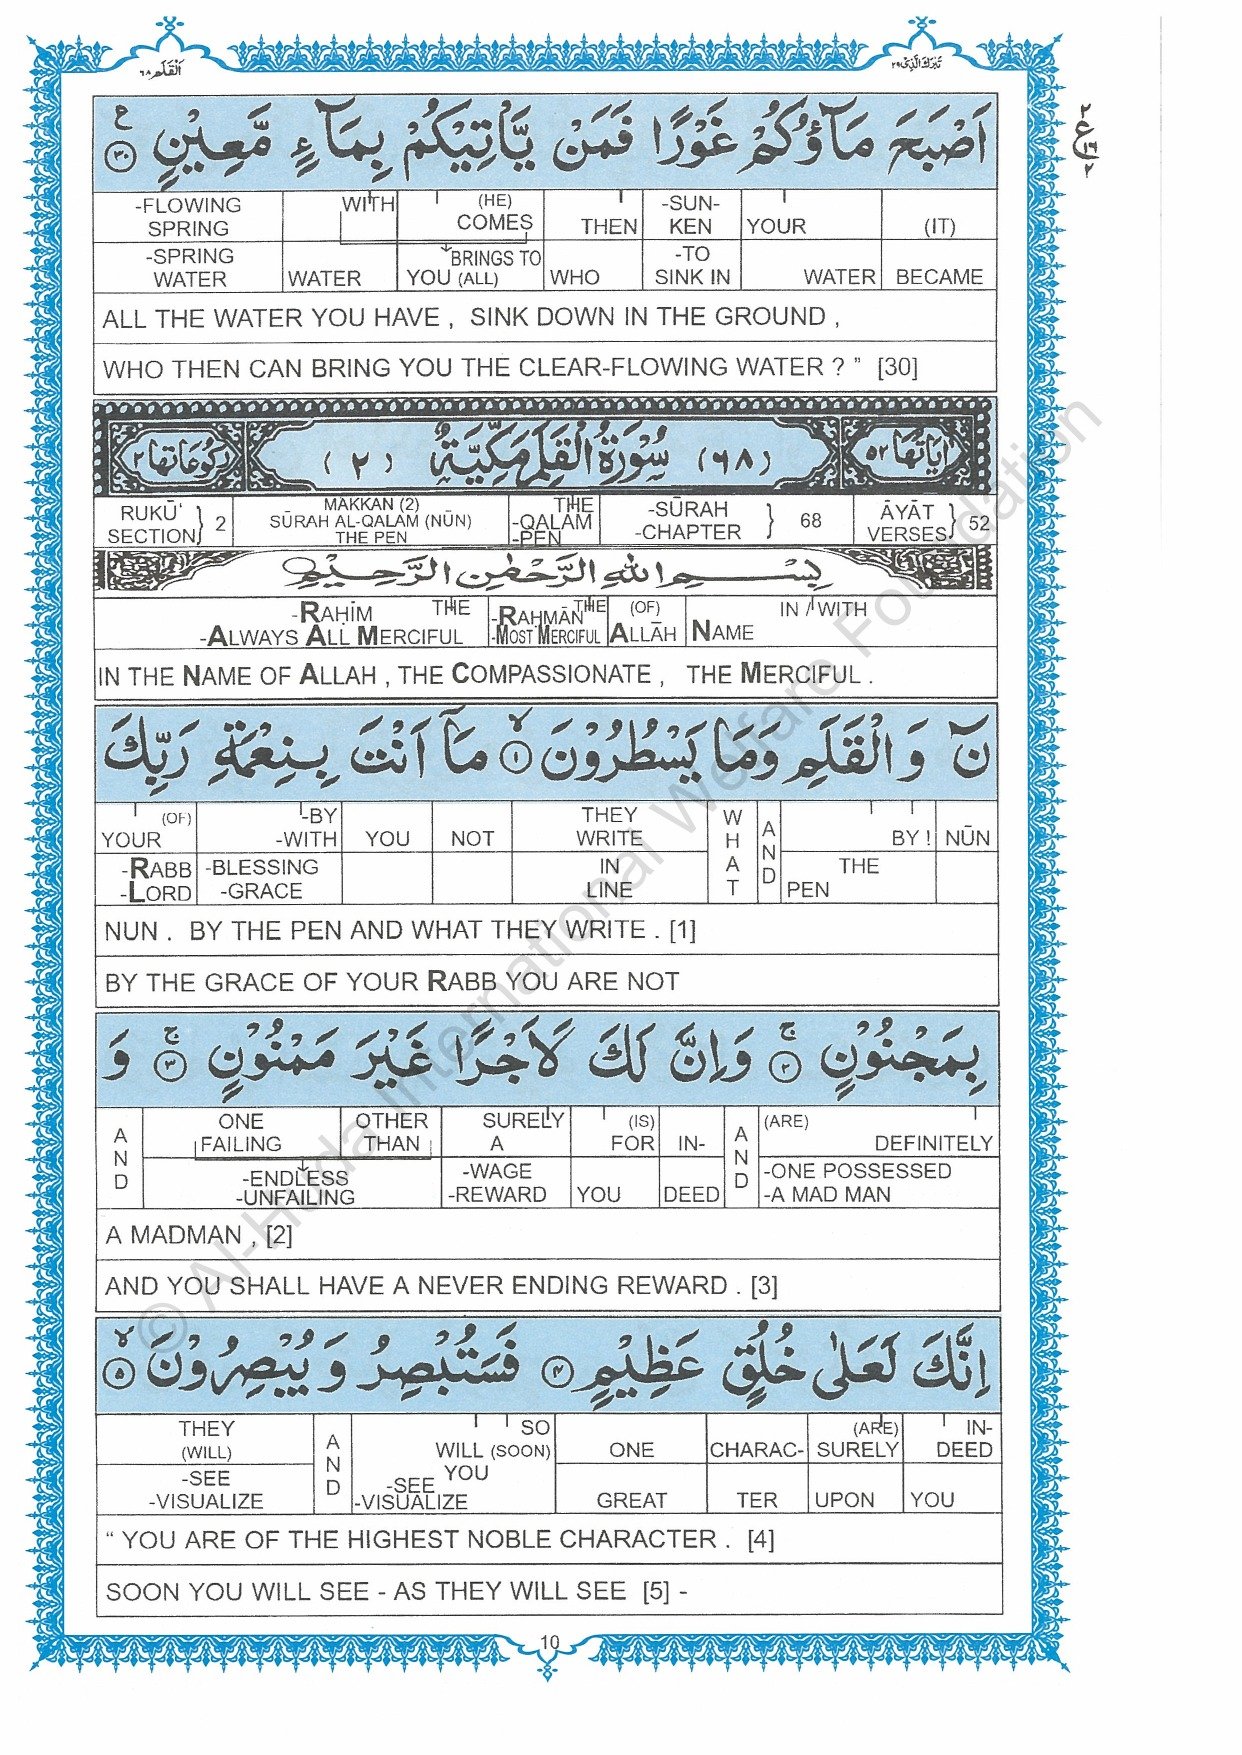 اَلْقَلَم ٦٨
تَبٰرَكَ الَّذِیْ ٢٩
اَصْبَحَ مَآؤُكُمْ غَوْرًا فَمَنْ يَّاْتِيْكُمْ بِمَآءٍ مَّعِيْنٍ ع ٣٠
٢ ع ١٦ ٢
-FLOWING SPRING WITH (HE) COMES THEN -SUN-KEN YOUR (IT)
-SPRING WATER WATER BRINGS TO YOU (ALL) WHO -TO SINK IN WATER BECAME
ALL THE WATER YOU HAVE , SINK DOWN IN THE GROUND ,
WHO THEN CAN BRING YOU THE CLEAR-FLOWING WATER ? ” [30]
اٰيَاتُهَا ٥٢ (٦٨) سُوْرَةُ الْقَلَمِ مَكِّيَّةٌ (٢) رُكُوْعَاتُهَا ٢
RUKŪ' SECTION } 2 MAKKAN (2) SŪRAH AL-QALAM (NŪN) THE PEN THE -QALAM -PEN -SŪRAH -CHAPTER } 68 ĀYĀT VERSES } 52
بِسْمِ اللهِ الرَّحْمٰنِ الرَّحِيْمِ
-RAḤĪM THE -ALWAYS ALL MERCIFUL -RAḤMĀN THE -MOST MERCIFUL (OF) ALLĀH NAME IN / WITH
IN THE NAME OF ALLAH , THE COMPASSIONATE , THE MERCIFUL .
نٓ وَ الْقَلَمِ وَمَا يَسْطُرُوْنَ ۙ ١ مَآ اَنْتَ بِنِعْمَةِ رَبِّكَ
(OF) YOUR -BY -WITH YOU NOT THEY WRITE WHAT AND BY ! NŪN
-RABB -LORD -BLESSING -GRACE IN LINE THE PEN
NUN . BY THE PEN AND WHAT THEY WRITE . [1]
BY THE GRACE OF YOUR RABB YOU ARE NOT
بِمَجْنُوْنٍ ۚ ٢ وَاِنَّ لَكَ لَاَجْرًا غَيْرَ مَمْنُوْنٍ ۚ ٣ وَ
AND ONE FAILING OTHER THAN SURELY A (IS) FOR IN- AND (ARE) DEFINITELY
-ENDLESS -UNFAILING -WAGE -REWARD YOU DEED -ONE POSSESSED -A MAD MAN
A MADMAN , [2]
AND YOU SHALL HAVE A NEVER ENDING REWARD . [3]
اِنَّكَ لَعَلٰى خُلُقٍ عَظِيْمٍ ٤ فَسَتُبْصِرُ وَ يُبْصِرُوْنَ ۙ ٥
THEY (WILL) AND SO WILL (SOON) YOU ONE CHARAC- (ARE) SURELY IN-DEED
-SEE -VISUALIZE -SEE -VISUALIZE GREAT TER UPON YOU
“ YOU ARE OF THE HIGHEST NOBLE CHARACTER . [4]
SOON YOU WILL SEE - AS THEY WILL SEE [5] -
10
© Al-Huda International Welfare Foundation